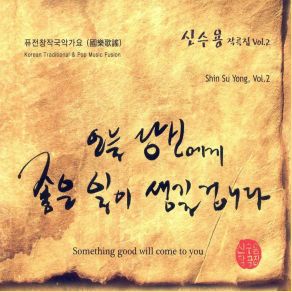 퓨전창작국악가요 (國樂歌謠)
Korean Traditional & Pop Music Fusion
신수용 작곡집 Vol.2
Shin Su Yong, Vol.2
오늘 당신에게
좋은 일이 생길겁니다
Something good will come to you